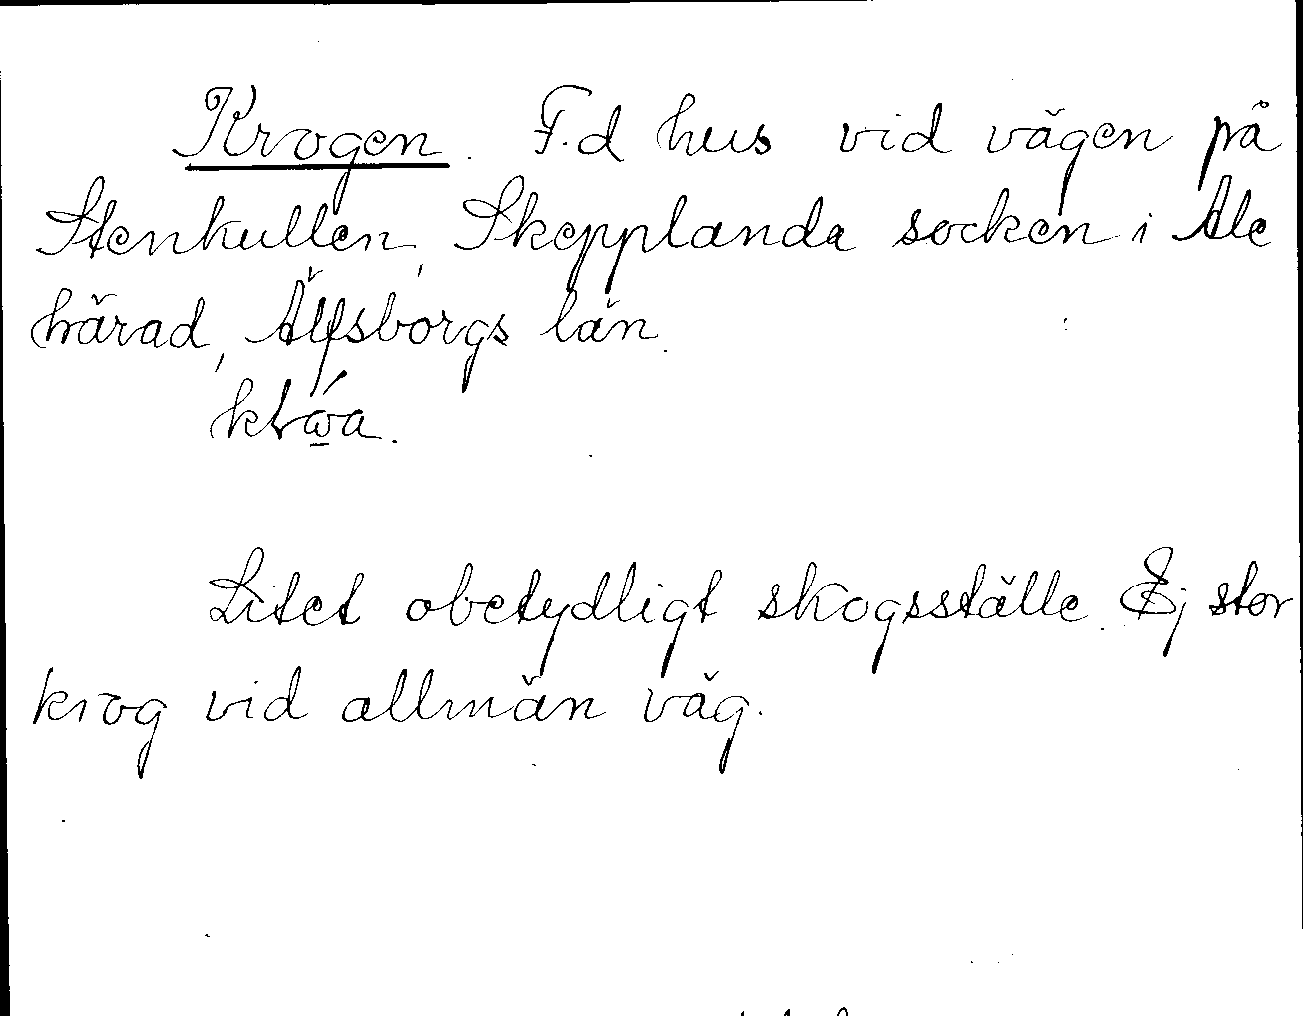 Krogen. F.d hus vid vägen på
Stenkullen, Skepplanda socken i Ale
härad, Älfsborgs län.
Litet obetydligt skogsställe. Ej stor
krog vid allmän väg.